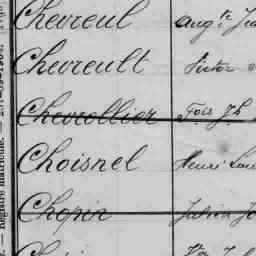 Chevreul Aug.te Ju
Chevreult Victor
Chevrollier Fois Jh
Choisnel Henri Lou
Chopin Julien Jo